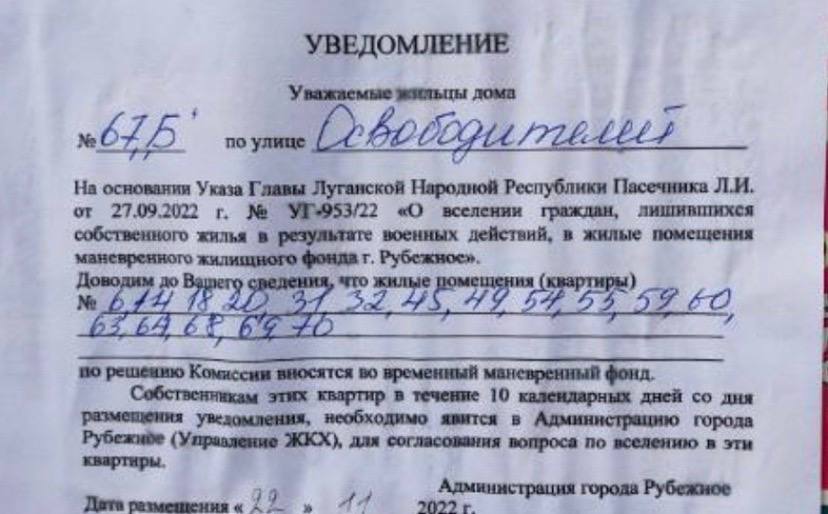 УВЕДОМЛЕНИЕ
Уважаемые жильцы дома
№ 67 „Б" по улице Освободителей
На основании Указа Главы Луганской Народной Республики Пасечника Л.И.
от 27.09.2022 г. № УГ-953/22 «О вселении граждан, лишившихся
собственного жилья в результате военных действий, в жилые помещения
маневренного жилищного фонда г. Рубежное».
Доводим до Вашего сведения, что жилые помещения (квартиры)
№ 18, 20, 31, 32, 45, 49, 54, 55, 59, 60,
63, 64, 68, 69, 70
по решению Комиссии вносятся во временный маневренный фонд.
Собственникам этих квартир в течение 10 календарных дней со дня
размещения уведомления, необходимо явится в Администрацию города
Рубежное (Управление ЖКХ), для согласования вопроса по вселению в эти
квартиры.
Администрация города Рубежное
Дата размещения « 22 » 11 2022 г.